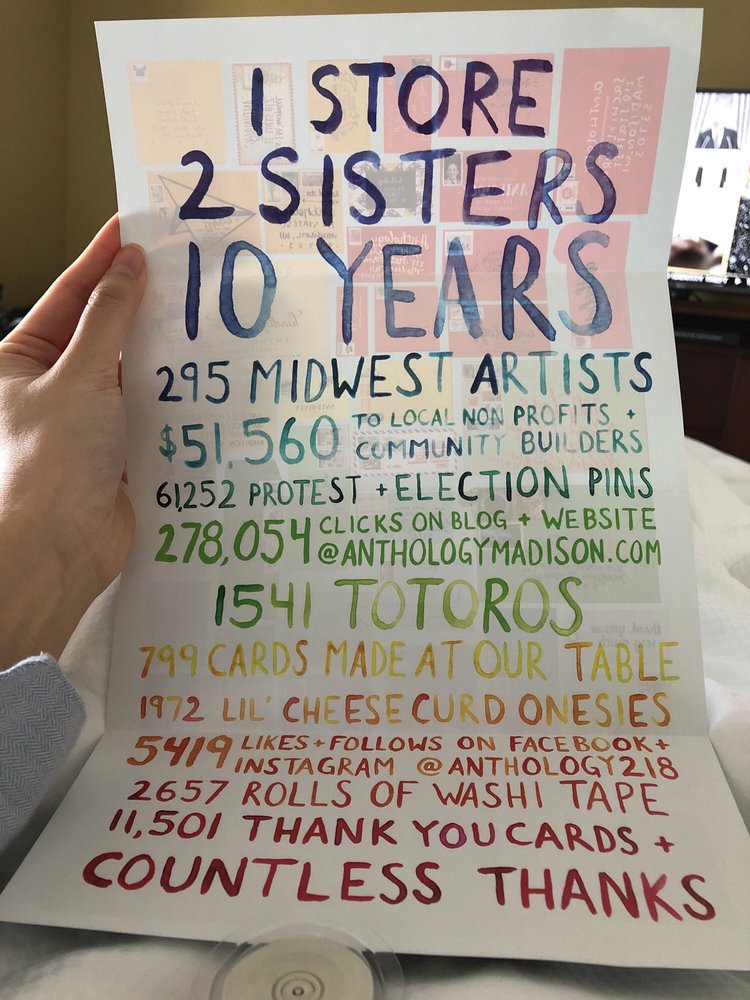 1 STORE
2 SISTERS
10 YEARS
295 MIDWEST ARTISTS
$51,560 TO LOCAL NON PROFITS +
COMMUNITY BUILDERS
61,252 PROTEST + ELECTION PINS
278,054 CLICKS ON BLOG + WEBSITE
@ANTHOLOGYMADISON.COM
1541 TOTOROS
799 CARDS MADE AT OUR TABLE
1972 LIL' CHEESE CURD ONESIES
5419 LIKES + FOLLOWS ON FACEBOOK +
INSTAGRAM @ANTHOLOGY218
2657 ROLLS OF WASHI TAPE
11,501 THANK YOU CARDS +
COUNTLESS THANKS